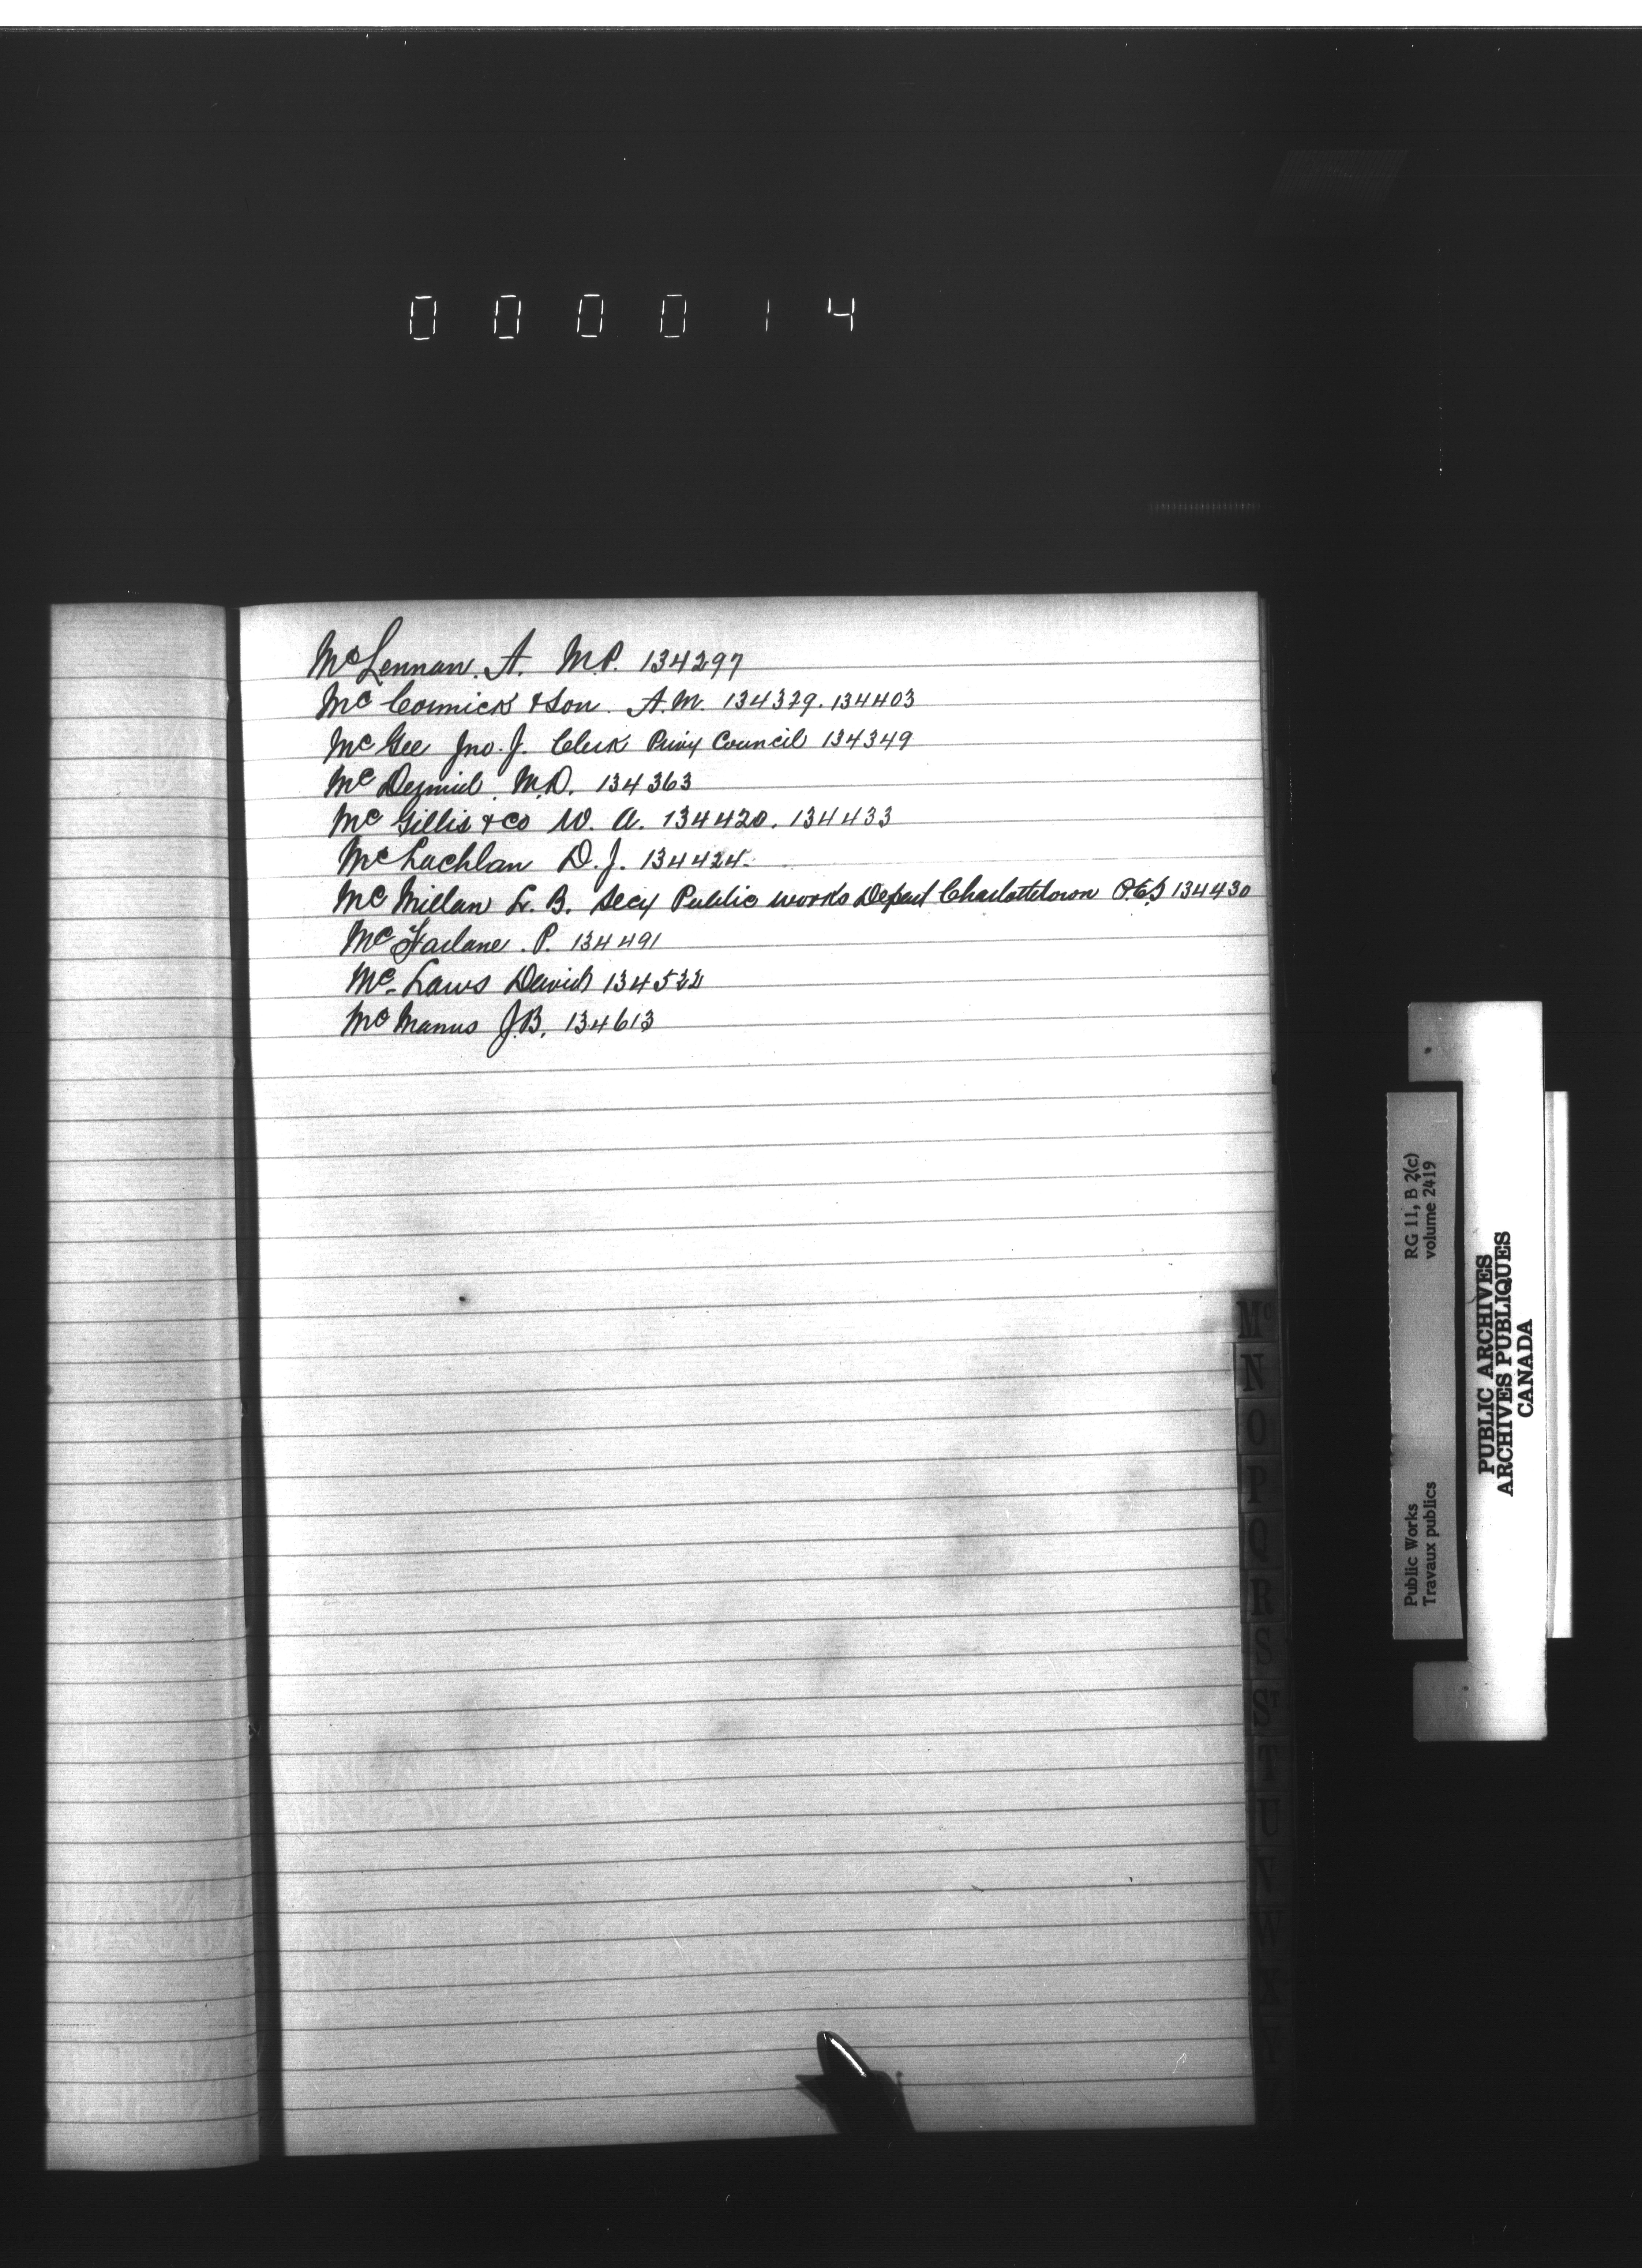 000014
McLennan. A. M.P. 134297
McCormick & Son. A.M. 134329. 134403
McGee Jno. J. Clerk Privy Council 134349
Mc M.D. 134363
McGillis & Co W. A. 134420. 134433
McLachlan D. J. 134424.
McMillan L. B. Secy Public Works Depart Charlottetown P.E.I 134430
McFarlane. P. 134491
Mc. Laws David 134522
McManus J.B. 134613
Mc
N
O
P
Q
R
S
St
T
U
V
W
X
Public Works
Travaux publics
RG 11, B 2(c)
volume 2419
PUBLIC ARCHIVES
ARCHIVES PUBLIQUES
CANADA